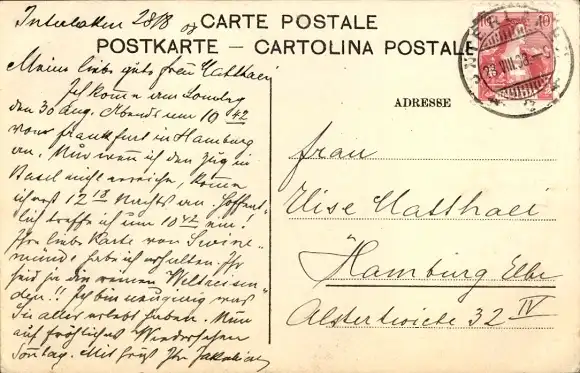 Interlaken 28/8 09
CARTE POSTALE
POSTKARTE – CARTOLINA POSTALE
Meine liebe gute Frau Matthaei
Ich komme am Sonntag
den 30 Aug. Abends um 10 42
von Frankfurt in Hamburg
an. Nur wenn ich den Zug in
Basel nicht erreiche, komme
ich erst 12 18 Nachts an. Hoffent-
lich treffe ich um 10 42 ein!
Ihre liebe Karte von Swine-
münde habe ich erhalten. Ihr
seid ja die reinen
den!! Ich bin neugierig was
Sie alles erlebt haben. Nun
auf fröhliches Wiedersehen
Sonntag. Mit Gruß Ihr
10
ADRESSE
Frau
Elise Matthaei
Hamburg Elbe
Alsterwiete 32 IV